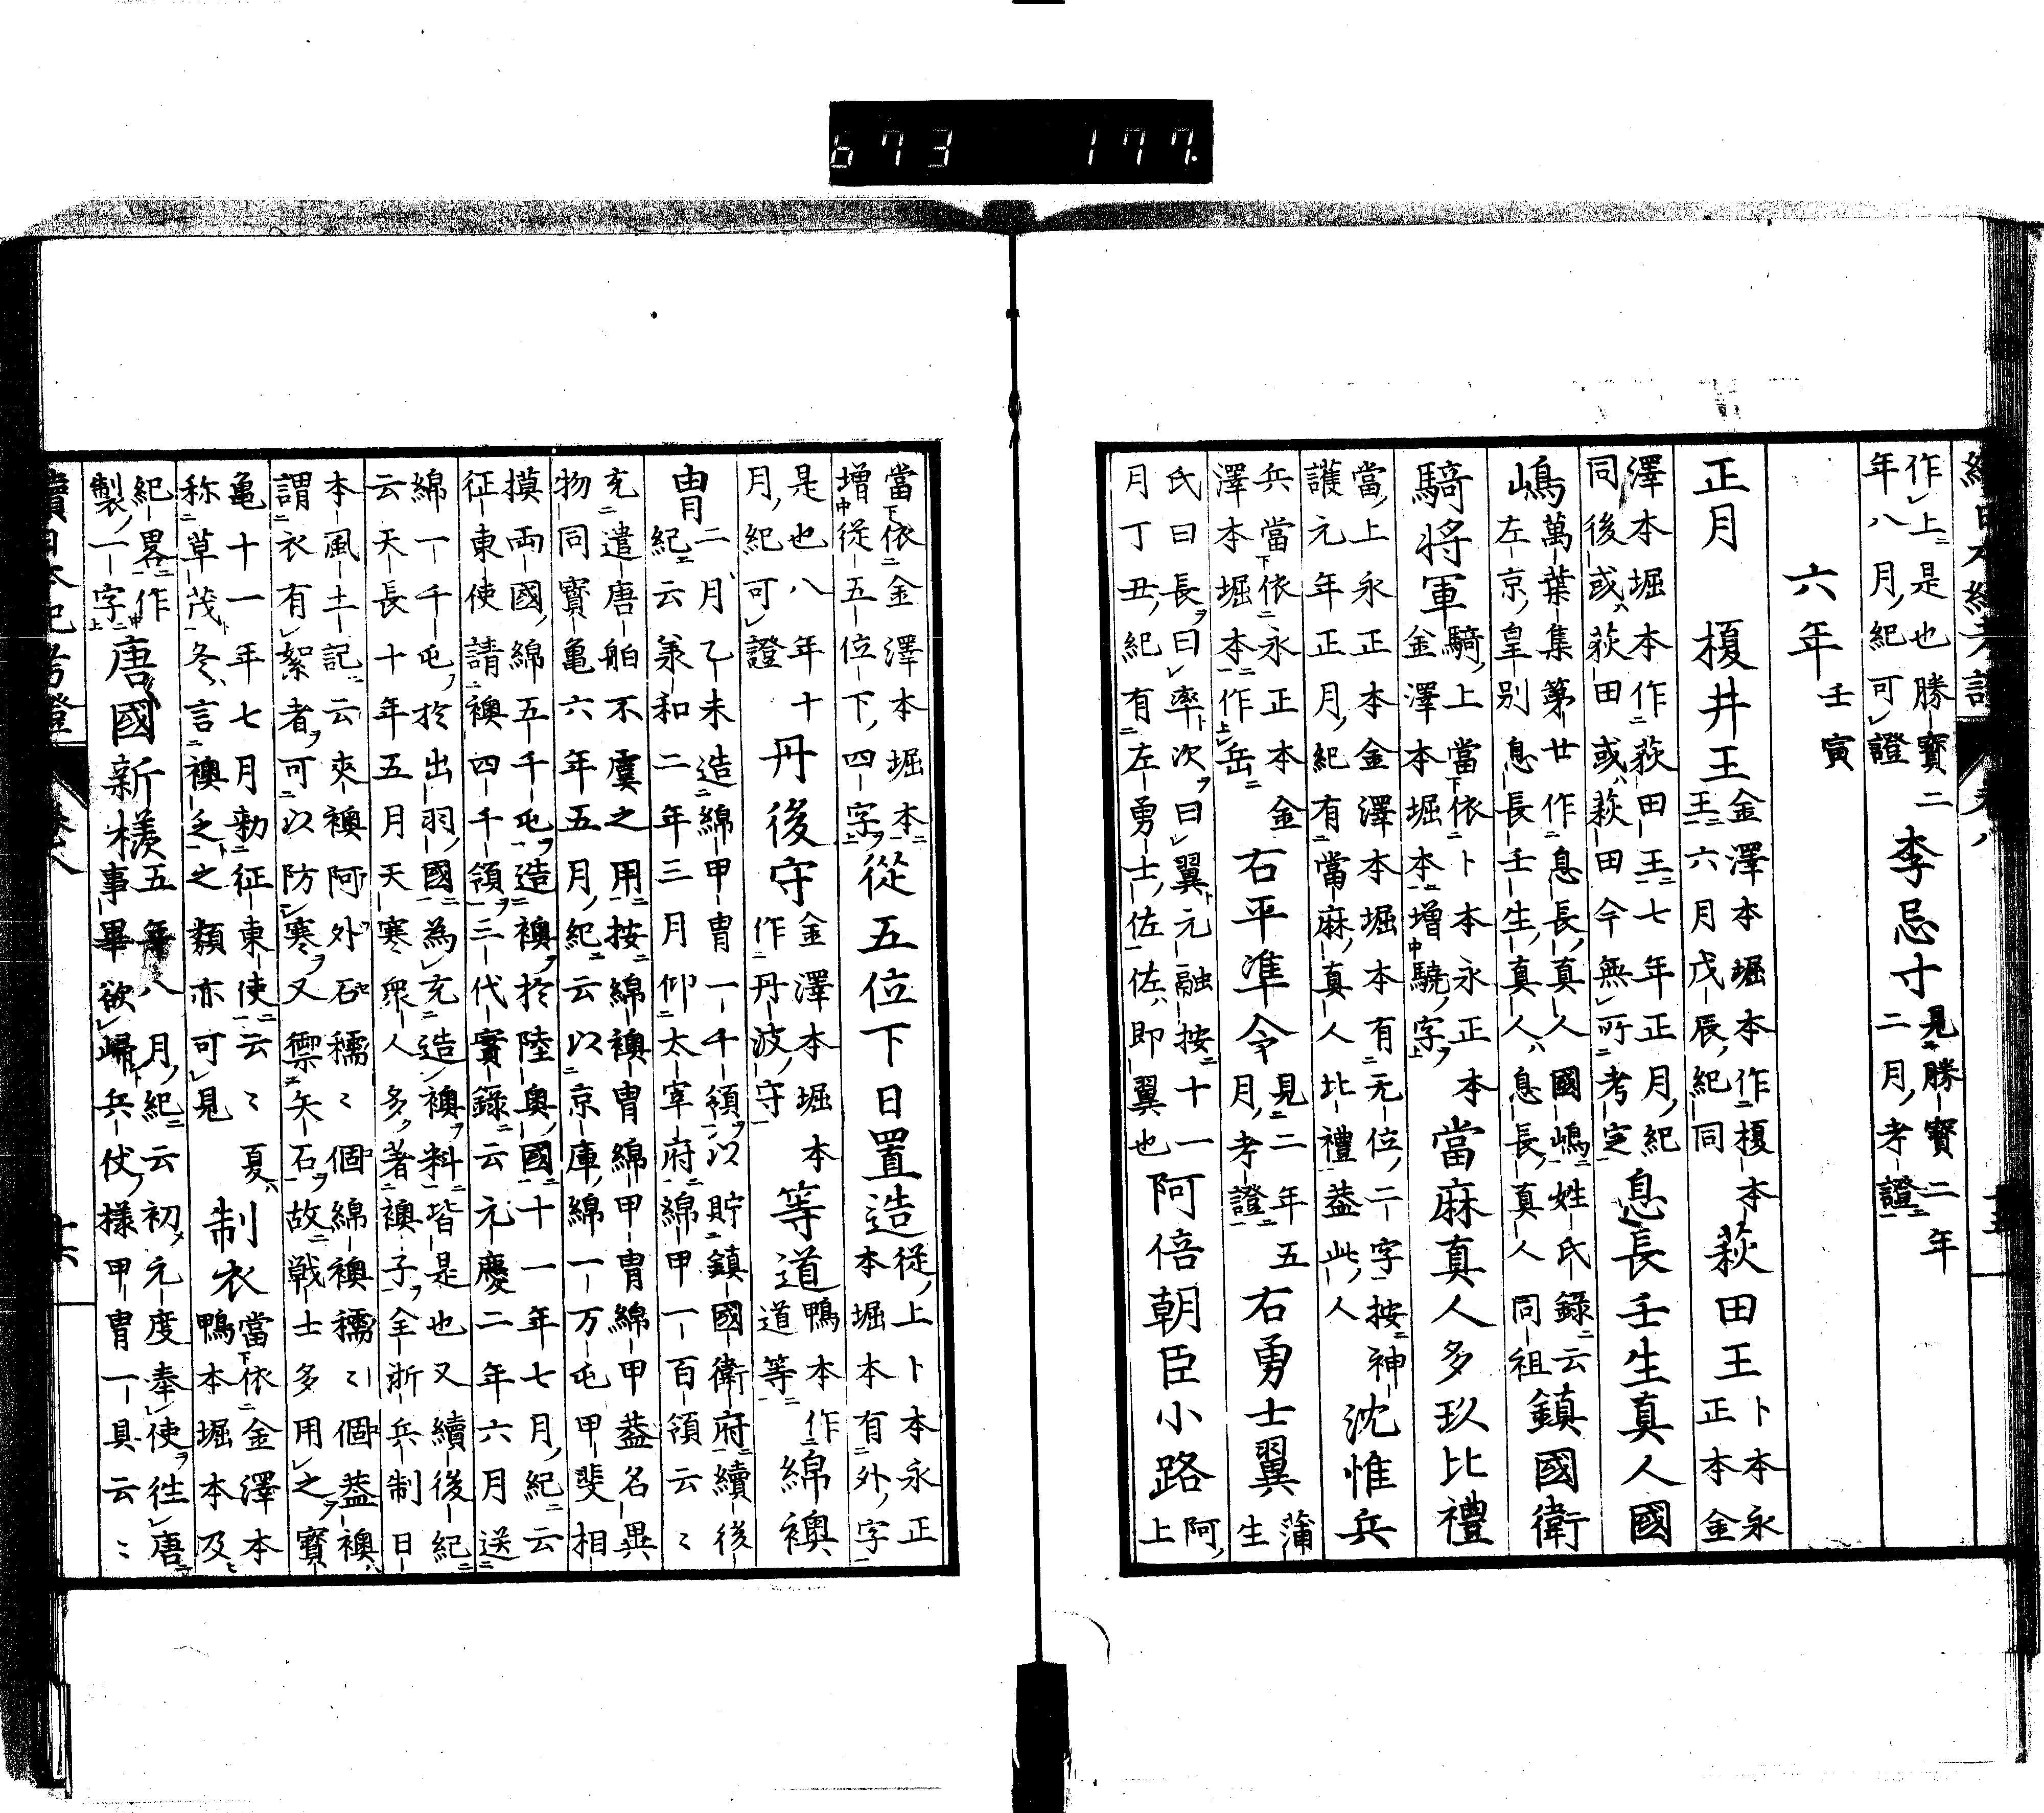 673 177.
作上是也勝寶二
年八月紀可證
李忌寸
見勝寶二年
二月考證
六年
壬寅
正月
榎井王
金澤本堀本作榎本
王六月戊辰紀同
荻田王
卜本永
正本金
澤本堀本作荻田王七年正月紀
同後或荻田或萩田今無所考定
息長壬生真人國
嶋
萬葉集第廿作息長真人國嶋姓氏錄云
左京皇別息長壬生真人息長真人同祖
鎮國衛
騎將軍
騎上當依卜本永正本
金澤本堀本增驍字
當麻真人多玖比禮
當上永正本金澤本堀本有无位二字按神
護元年正月紀有當麻真人比禮蓋此人
沈惟兵
兵當依永正本金
澤本堀本作岳
右平準令
見二年五
月考證
右勇士翼
蒲生
氏曰長曰率次曰翼元融按十一
月丁丑紀有左勇士佐佐即翼也
阿倍朝臣小路
阿上
當依金澤本堀本
增從五位下四字
從五位下日置造
從上卜本永正
本堀本有外字
是也八年十
月紀可證
丹後守
金澤本堀本
作丹波守
等道
鴨本作
道等
綿襖
冑
二月乙未造綿甲冑一千領以貯鎮國衛府續後
紀云兼和二年三月仰太宰府綿甲一百領云〻
充遣唐舶不虞之用按綿襖冑綿甲冑綿甲蓋名異
物同寶龜六年五月紀云以京庫綿一万屯甲斐相
摸両國綿五千屯造襖於陸奧國十一年七月紀云
征東使請襖四千領三代實錄云元慶二年六月送
綿一千屯於出羽國為充造襖料皆是也又續後紀
云天長十年五月天寒衆人多著襖子全浙兵制日
本風土記云夾襖阿外石穤〻個綿襖穤〻個蓋襖
謂衣有絮者可以防寒又禦矢石故戰士多用之寶
龜十一年七月勅征東使云〻夏
称草茂冬言襖乏之類亦可見
制衣
當依金澤本
鴨本堀本及
紀畧作
製一字
唐國新樣
五年八月紀云初元度奉使往唐
事畢欲歸兵仗樣甲冑一具云〻